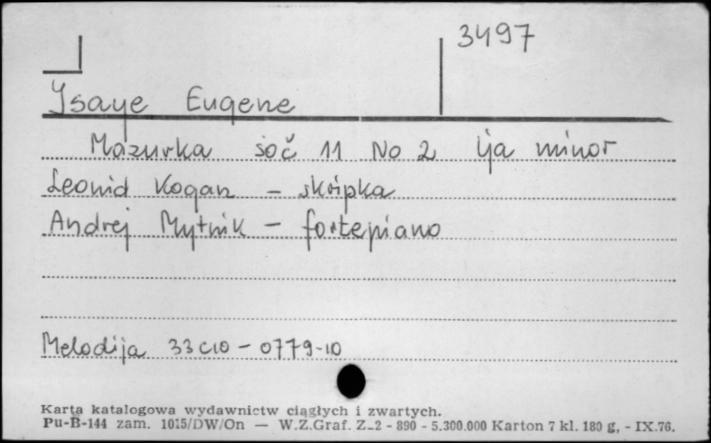 3497
Ysaye Eugene
Mazurka soč 11 No 2 lja minor
Leonid Kogan - skřipka
Andrej Mytnik - fortepiano
Melodija 33 C10 - 0779-10
Karta katalogowa wydawnictw ciągłych i zwartych.
Pu-B-144 zam. 1015/DW/On — W.Z.Graf. Z-2 - 890 - 5.300.000 Karton 7 kl. 180 g, - IX.76.